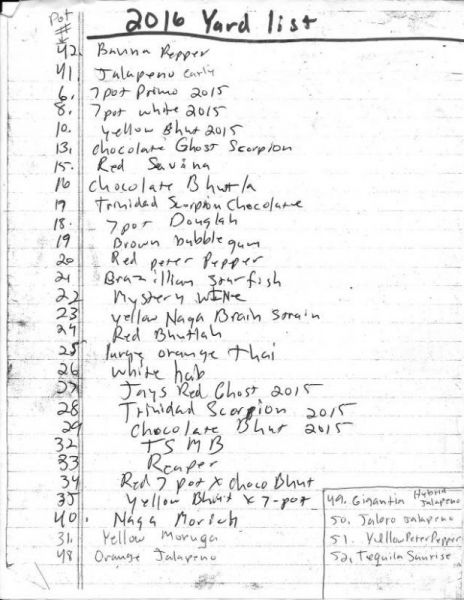 Pot #
2016 Yard list
42. Bauna Pepper
41. Jalapeno early
6. 7pot Primo 2015
8. 7pot white 2015
10. yellow Bhut 2015
13. chocolate Ghost Scorpion
15. Red Savina
16 chocolate Bhutla
19 Trinidad Scorpion Chocolate
18. 7pot Douglah
19 Brown bubblegum
20 Red peter Pepper
21 Brazillian starfish
22 Mystery WINE
23 yellow Naga Brain strain
24 Red Bhutlah
25 large orange thai
26 white hab
27 Jays Red Ghost 2015
28 Trinidad Scorpion 2015
29 Chocolate Bhut 2015
32 TSMB
33 Reaper
34 Red 7 pot x Choco Bhut
35 Yellow Bhut x 7-pot
40. Naga Morich
31. Yellow Moruga
48 Orange Jalapeno
49. Gigantia Hybrid Jalapeno
50. Jaloro Jalapeno
51. Yellow Peter Pepper
52. Tequila Sunrise